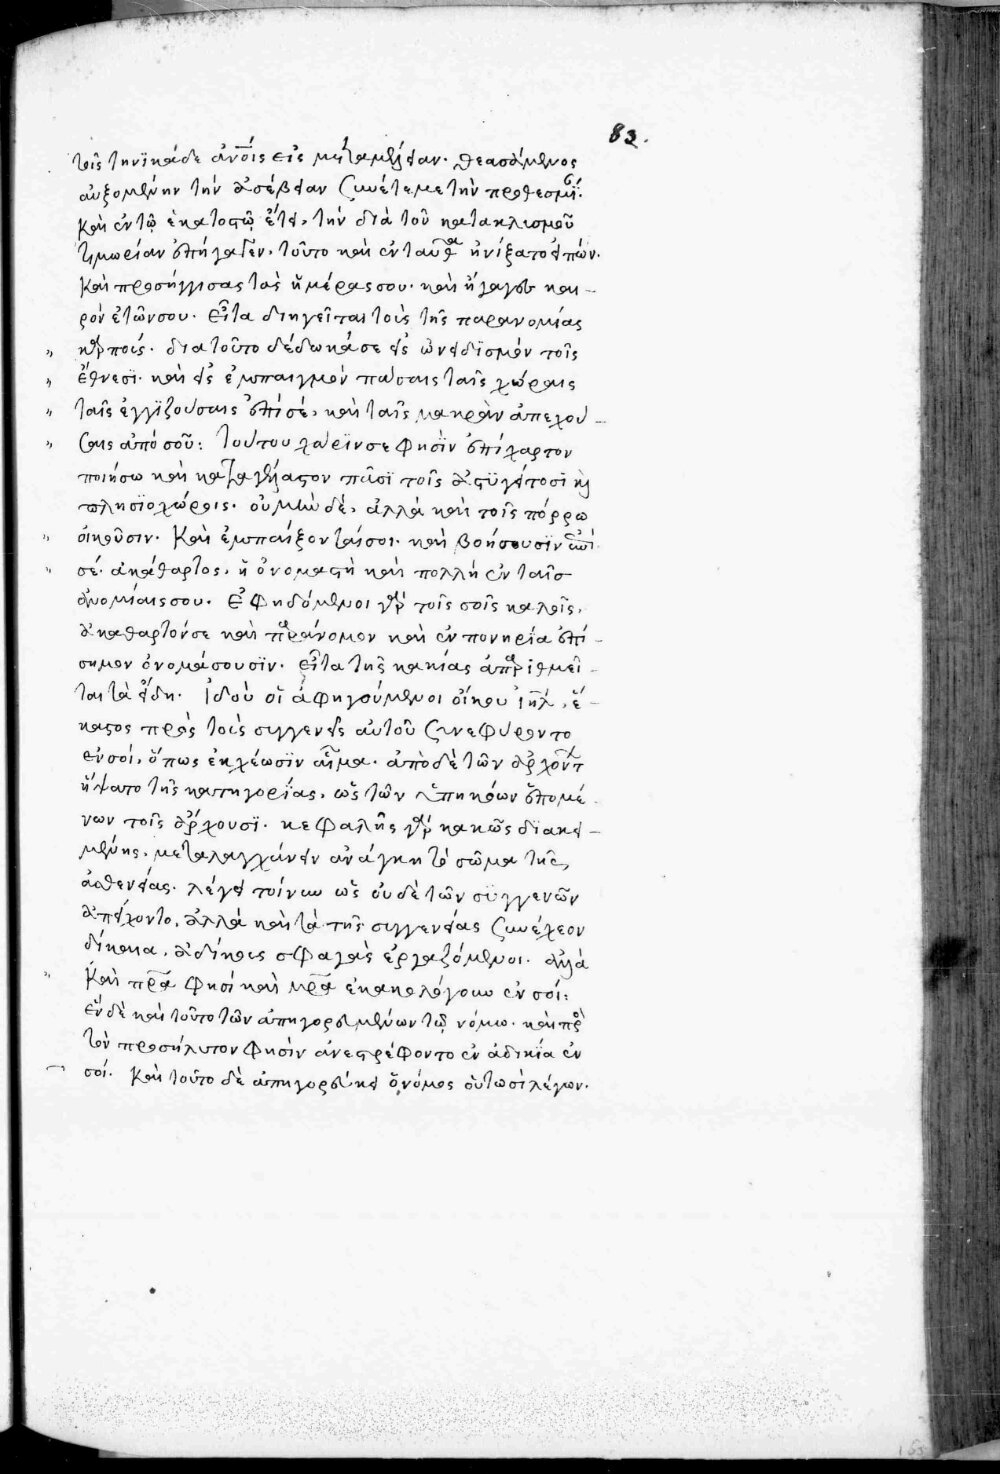 83.
τοῖς τηνϊκάδε ἀν̅ο̅ις εἰς μεταμέλειαν. θεασάμενος
αὐξομένην τὴν ἀσέβειαν ξυνέτεμε τὴν προθεσμί.
καὶ ἐν τῷ ἑκατοστῷ ἔτει, τὴν διὰ τοῦ κατακλισμοῦ
τιμωρίαν ἐπήγαγεν. τοῦτο καὶ ἐνταῦθα ἠνίξατο εἰπών.
καὶ προσήγγισας τὰς ἡμέρας σου. καὶ ἤγαγες και-
ρὸν ἐτῶν σου. εἶτα διηγεῖται τοὺς τῆς παρανομίας
καρποίς. διατοῦτο δέδωκά σε εἰς ὠνειδϊσμὸν τοῖς
ἔθνεσϊ. καὶ εἰς ἐμπαιγμὸν πάσαις ταῖς χώραις
ταῖς ἐγγϊζούσαις ἐπί σέ, καὶ ταῖς μακρὰν ἀπεχού-
σαις ἀπό σοῦ: τούτου χάρϊν σε φησὶν ἐπίχαρτον
ποιήσω καὶ καταγέλαστον πᾶσϊ τοῖς ἀστϋγείτοσϊ καὶ
πλησϊοχώροις. οὐ μὴν δέ, ἀλλὰ καὶ τοῖς πόρρω
οἰκοῦσιν. καὶ ἐμπαίξονταί σοι. καὶ βοήσουσϊν ἐπί
σέ. ἀκάθαρτος, ἡ ὀνομαστὴ καὶ πολλὴ ἐν ταῖς
ἀνομίαις σου. ἐφηδόμενοι γὰρ τοῖς σοῖς κακοῖς,
ἀκαθαρτόν σε καὶ παράνομον καὶ ἐν πονηρία ἐπί-
σημον ὀνομάσουσϊν. εἶτα τῆς κακίας ἀπαριθμεῖ-
ται τὰ εἴδη. ἰδοὺ οἱ ἀφηγούμενοι οἴκου ἰη̅λ, ἕ-
καστος πρὸς τοὶς συγγενεῖς αὐτοῦ ξυνεφύροντο
ἐν σοί, ὅπως ἐκχέωσϊν αἷμα. ἀπὸ δὲ τῶν ἀρχόντ
ἤψατο τῆς κατηγορΐας, ὡς τῶν ὑπηκόων ἑπομέ
νων τοῖς ἄρχουσϊ. κεφαλῆς γὰρ κακῶς δϊακει-
μένης, μεταλαγχάνειν ἀνάγκη τὸ σῶμα τῆς
ἀσθενείας. λέγει τοίνυν ὡς οὐδὲ τῶν σϋγγενῶν
ἀπείχοντο, ἀλλὰ καὶ τὰ τῆς συγγενείας ξυνέχεον
δίκαια, ἀδίκοις σφαγὰς ἐργαζόμενοι.
καὶ π̅ρ̅α φησί καὶ μ̅ρ̅α ἐκακολόγουν ἐν σοί:
ἓν δὲ καὶ τοῦτο τῶν ἀπηγορευμένων τῷ νόμω. καὶ πρὸ
τὸν προσήλυτον φησὶν ἀνεστρέφοντο ἐν ἀδικΐα ἐν
σοί. καὶ τοῦτο δὲ ἀπηγορεύκει ὁ νόμος οὑτωσὶ λέγων.